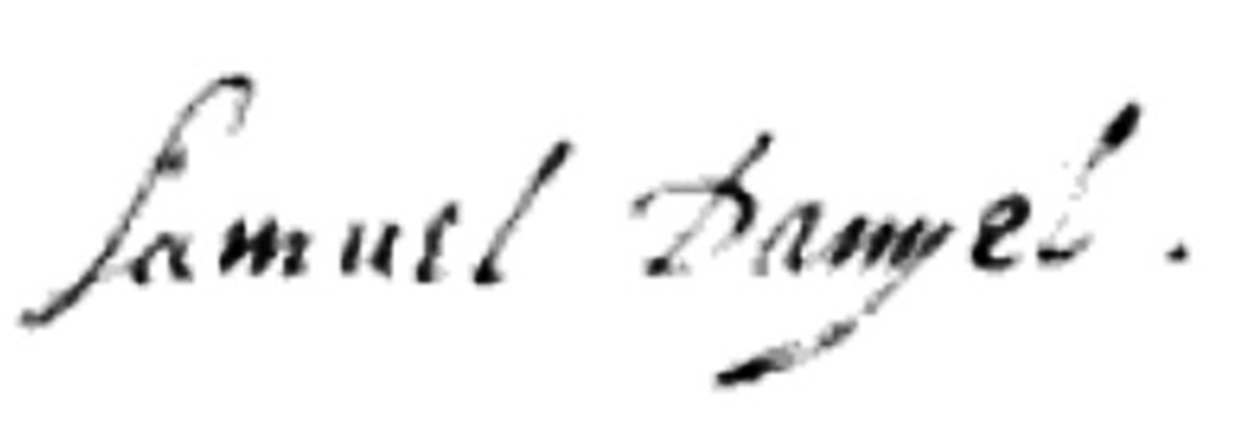 Samuel Danyel.